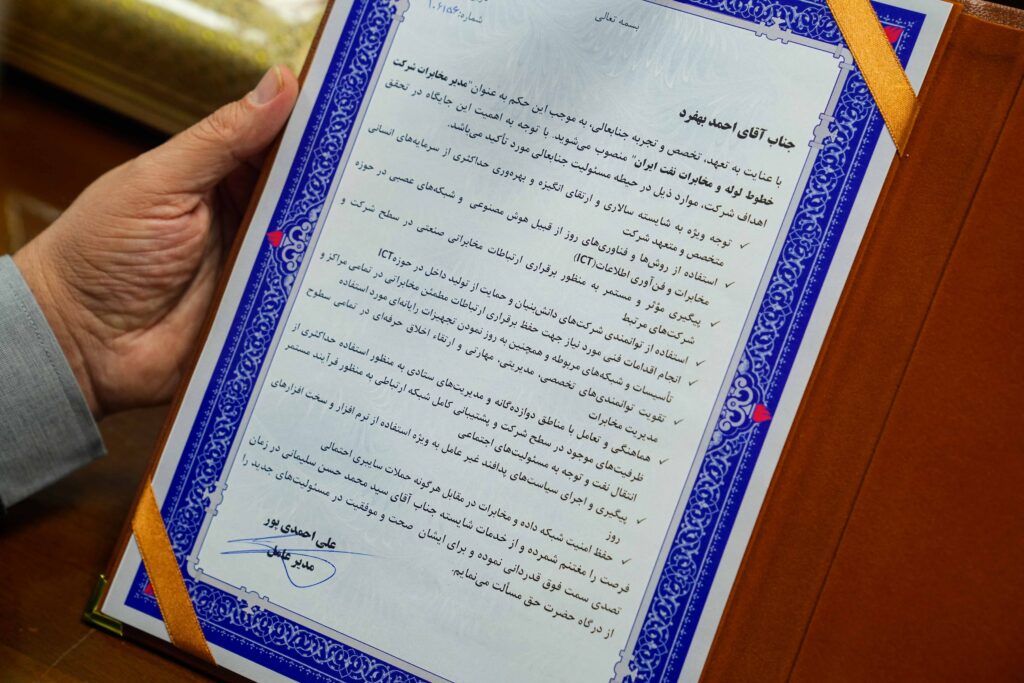 بسمه تعالی
شماره: ۱۰۶۱۵۶
جناب آقای احمد بهفرد
با عنایت به تعهد، تخصص و تجربه جنابعالی، به موجب این حکم به عنوان "مدیر مخابرات شرکت
خطوط لوله و مخابرات نفت ایران" منصوب می‌شوید. با توجه به اهمیت این جایگاه در تحقق
اهداف شرکت، موارد ذیل در حیطه مسئولیت جنابعالی مورد تأکید می‌باشد.
✓ توجه ویژه به شایسته سالاری و ارتقای انگیزه و بهره‌وری حداکثری از سرمایه‌های انسانی
متخصص و متعهد شرکت
✓ استفاده از روش‌ها و فناوری‌های روز از قبیل هوش مصنوعی و شبکه‌های عصبی در حوزه
مخابرات و فن‌آوری اطلاعات(ICT)
✓ پیگیری مؤثر و مستمر به منظور برقراری ارتباطات مخابراتی صنعتی در سطح شرکت و
شرکت‌های مرتبط
✓ استفاده از توانمندی شرکت‌های دانش‌بنیان و حمایت از تولید داخل در حوزه ICT
✓ انجام اقدامات فنی مورد نیاز جهت حفظ برقراری ارتباطات مطمئن مخابراتی در تمامی مراکز و
تأسیسات و شبکه‌های مربوطه و همچنین به روز نمودن تجهیزات رایانه‌ای مورد استفاده
✓ تقویت توانمندی‌های تخصصی، مدیریتی، مهارتی و ارتقاء اخلاق حرفه‌ای در تمامی سطوح
مدیریت مخابرات
✓ هماهنگی و تعامل با مناطق دوازده‌گانه و مدیریت‌های ستادی به منظور استفاده حداکثری از
ظرفیت‌های موجود در سطح شرکت و پشتیبانی کامل شبکه ارتباطی به منظور فرآیند مستمر
انتقال نفت و توجه به مسئولیت‌های اجتماعی
✓ پیگیری و اجرای سیاست‌های پدافند غیر عامل به ویژه استفاده از نرم افزار و سخت افزارهای
روز
✓ حفظ امنیت شبکه داده و مخابرات در مقابل هرگونه حملات سایبری احتمالی
فرصت را مغتنم شمرده و از خدمات شایسته جناب آقای سید محمد حسن سلیمانی در زمان
تصدی سمت فوق قدردانی نموده و برای ایشان صحت و موفقیت در مسئولیت‌های جدید را
از درگاه حضرت حق مسألت می‌نمایم.
علی احمدی پور
مدیر عامل